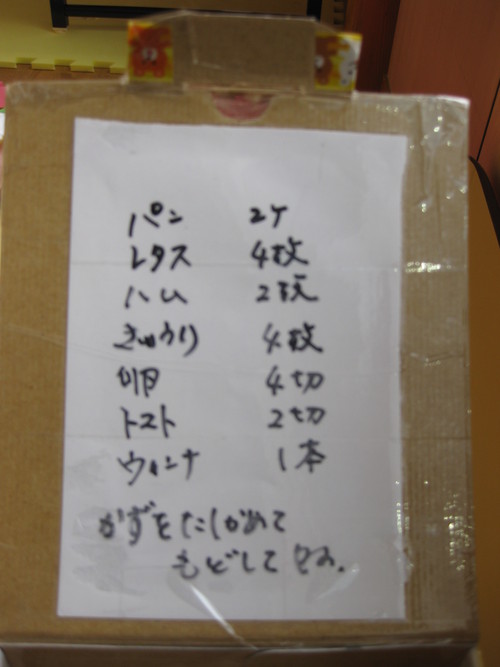 パン 2ケ
レタス 4枚
ハム 2枚
きゅうり 4枚
卵 4切
トマト 2切
ウィンナ 1本
かずをたしかめて
もどして下さい.